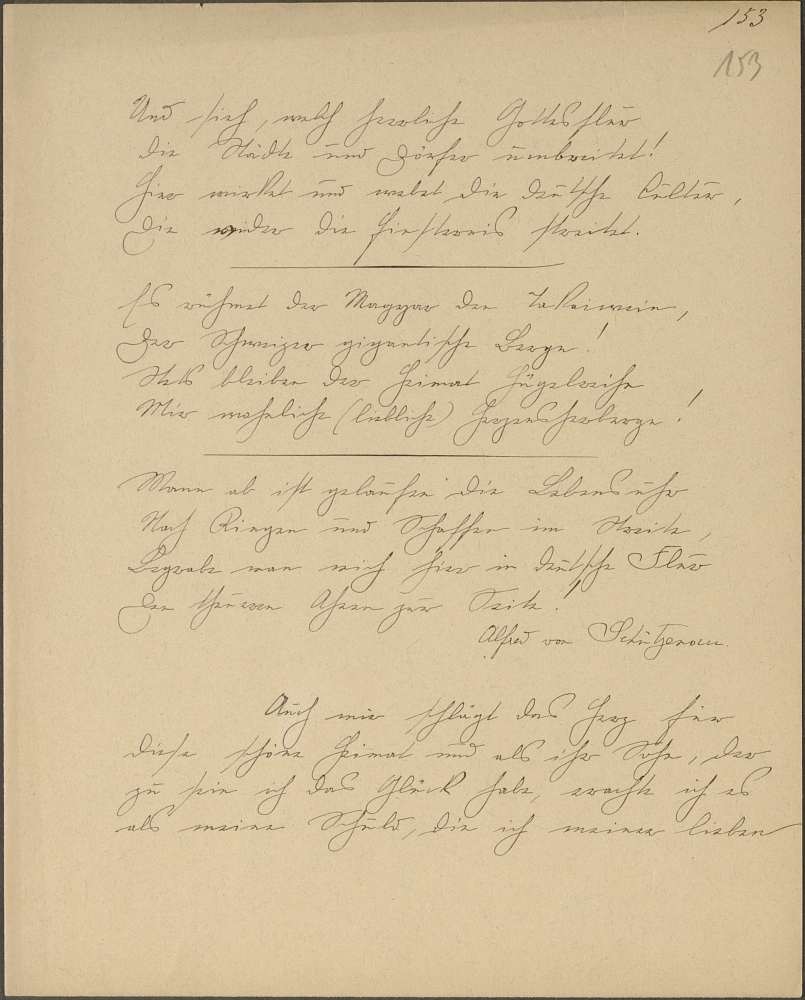 153
153
Und sieh, welch herrliche Gottesflur
die Städte und Dörfer umbreitet!
Hier wirket und webet die deutsche Cultur,
Die wider die Finsternis streitet.
Es rühmet der Magyar den Tokeierwein,
Der Schweizer gigantische Berge!
Stets bleiben der Heimat Hügelreihe
Mir wohnliche (liebliche) Herzensherberge!
Wann ab ist gelaufen die Lebensuhr
Nach Ringen und Schaffen im Streite,
Begrabe man mich hier in deutsche Flur
Den theueren Ahnen zur Seite!
Alfred von Schützenau.
Auch mir schlägt das Herz für
diese schöne Heimat und als ihr Sohn, der
zu sein ich das Glück habe, erachte ich es
als meine Schuld, die ich meiner lieben